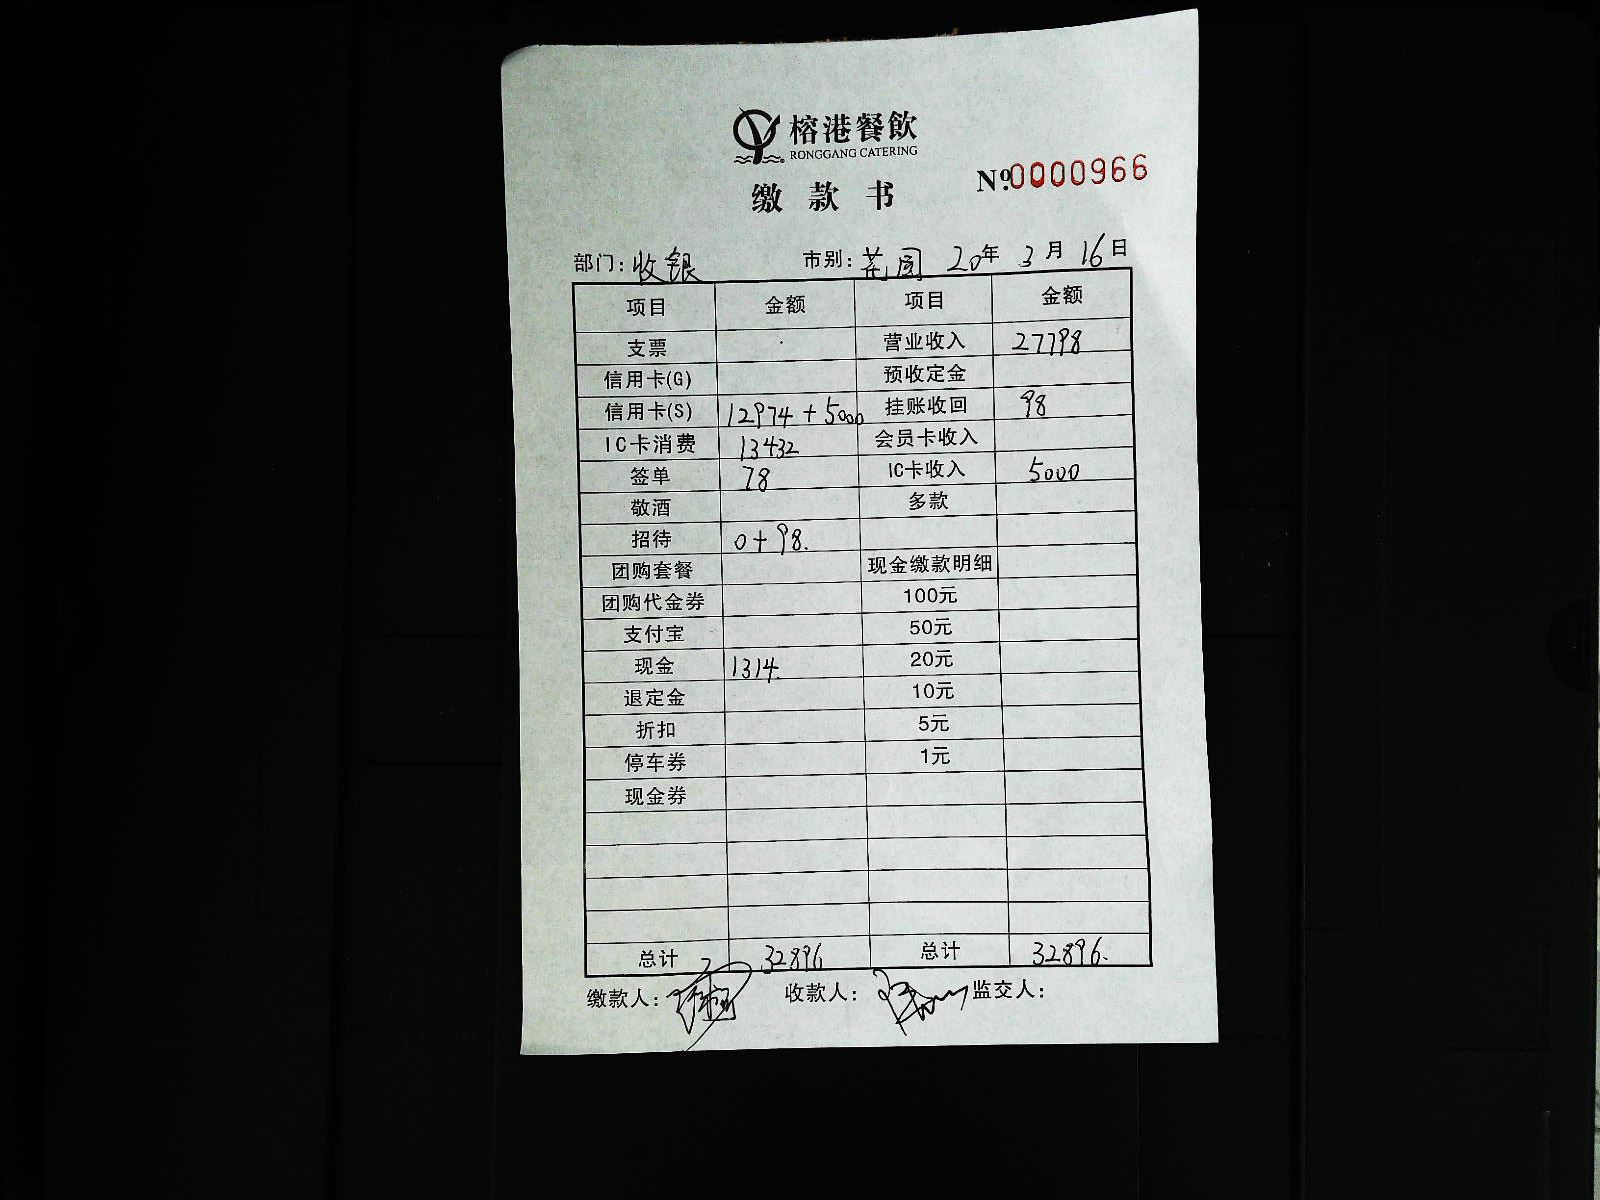 榕港餐飲
RONGGANG CATERING
缴款书
№0000966
部门：收银 市别：花园 20年3月16日
项目 金额 项目 金额
支票 营业收入 27798
信用卡(G) 预收定金
信用卡(S) 12974+5000 挂账收回 98
IC卡消费 13432 会员卡收入
签单 78 IC卡收入 5000
敬酒 多款
招待 0+98.
团购套餐 现金缴款明细
团购代金券 100元
支付宝 50元
现金 1314. 20元
退定金 10元
折扣 5元
停车券 1元
现金券
总计 32896 总计 32896.
缴款人： 收款人： 监交人：